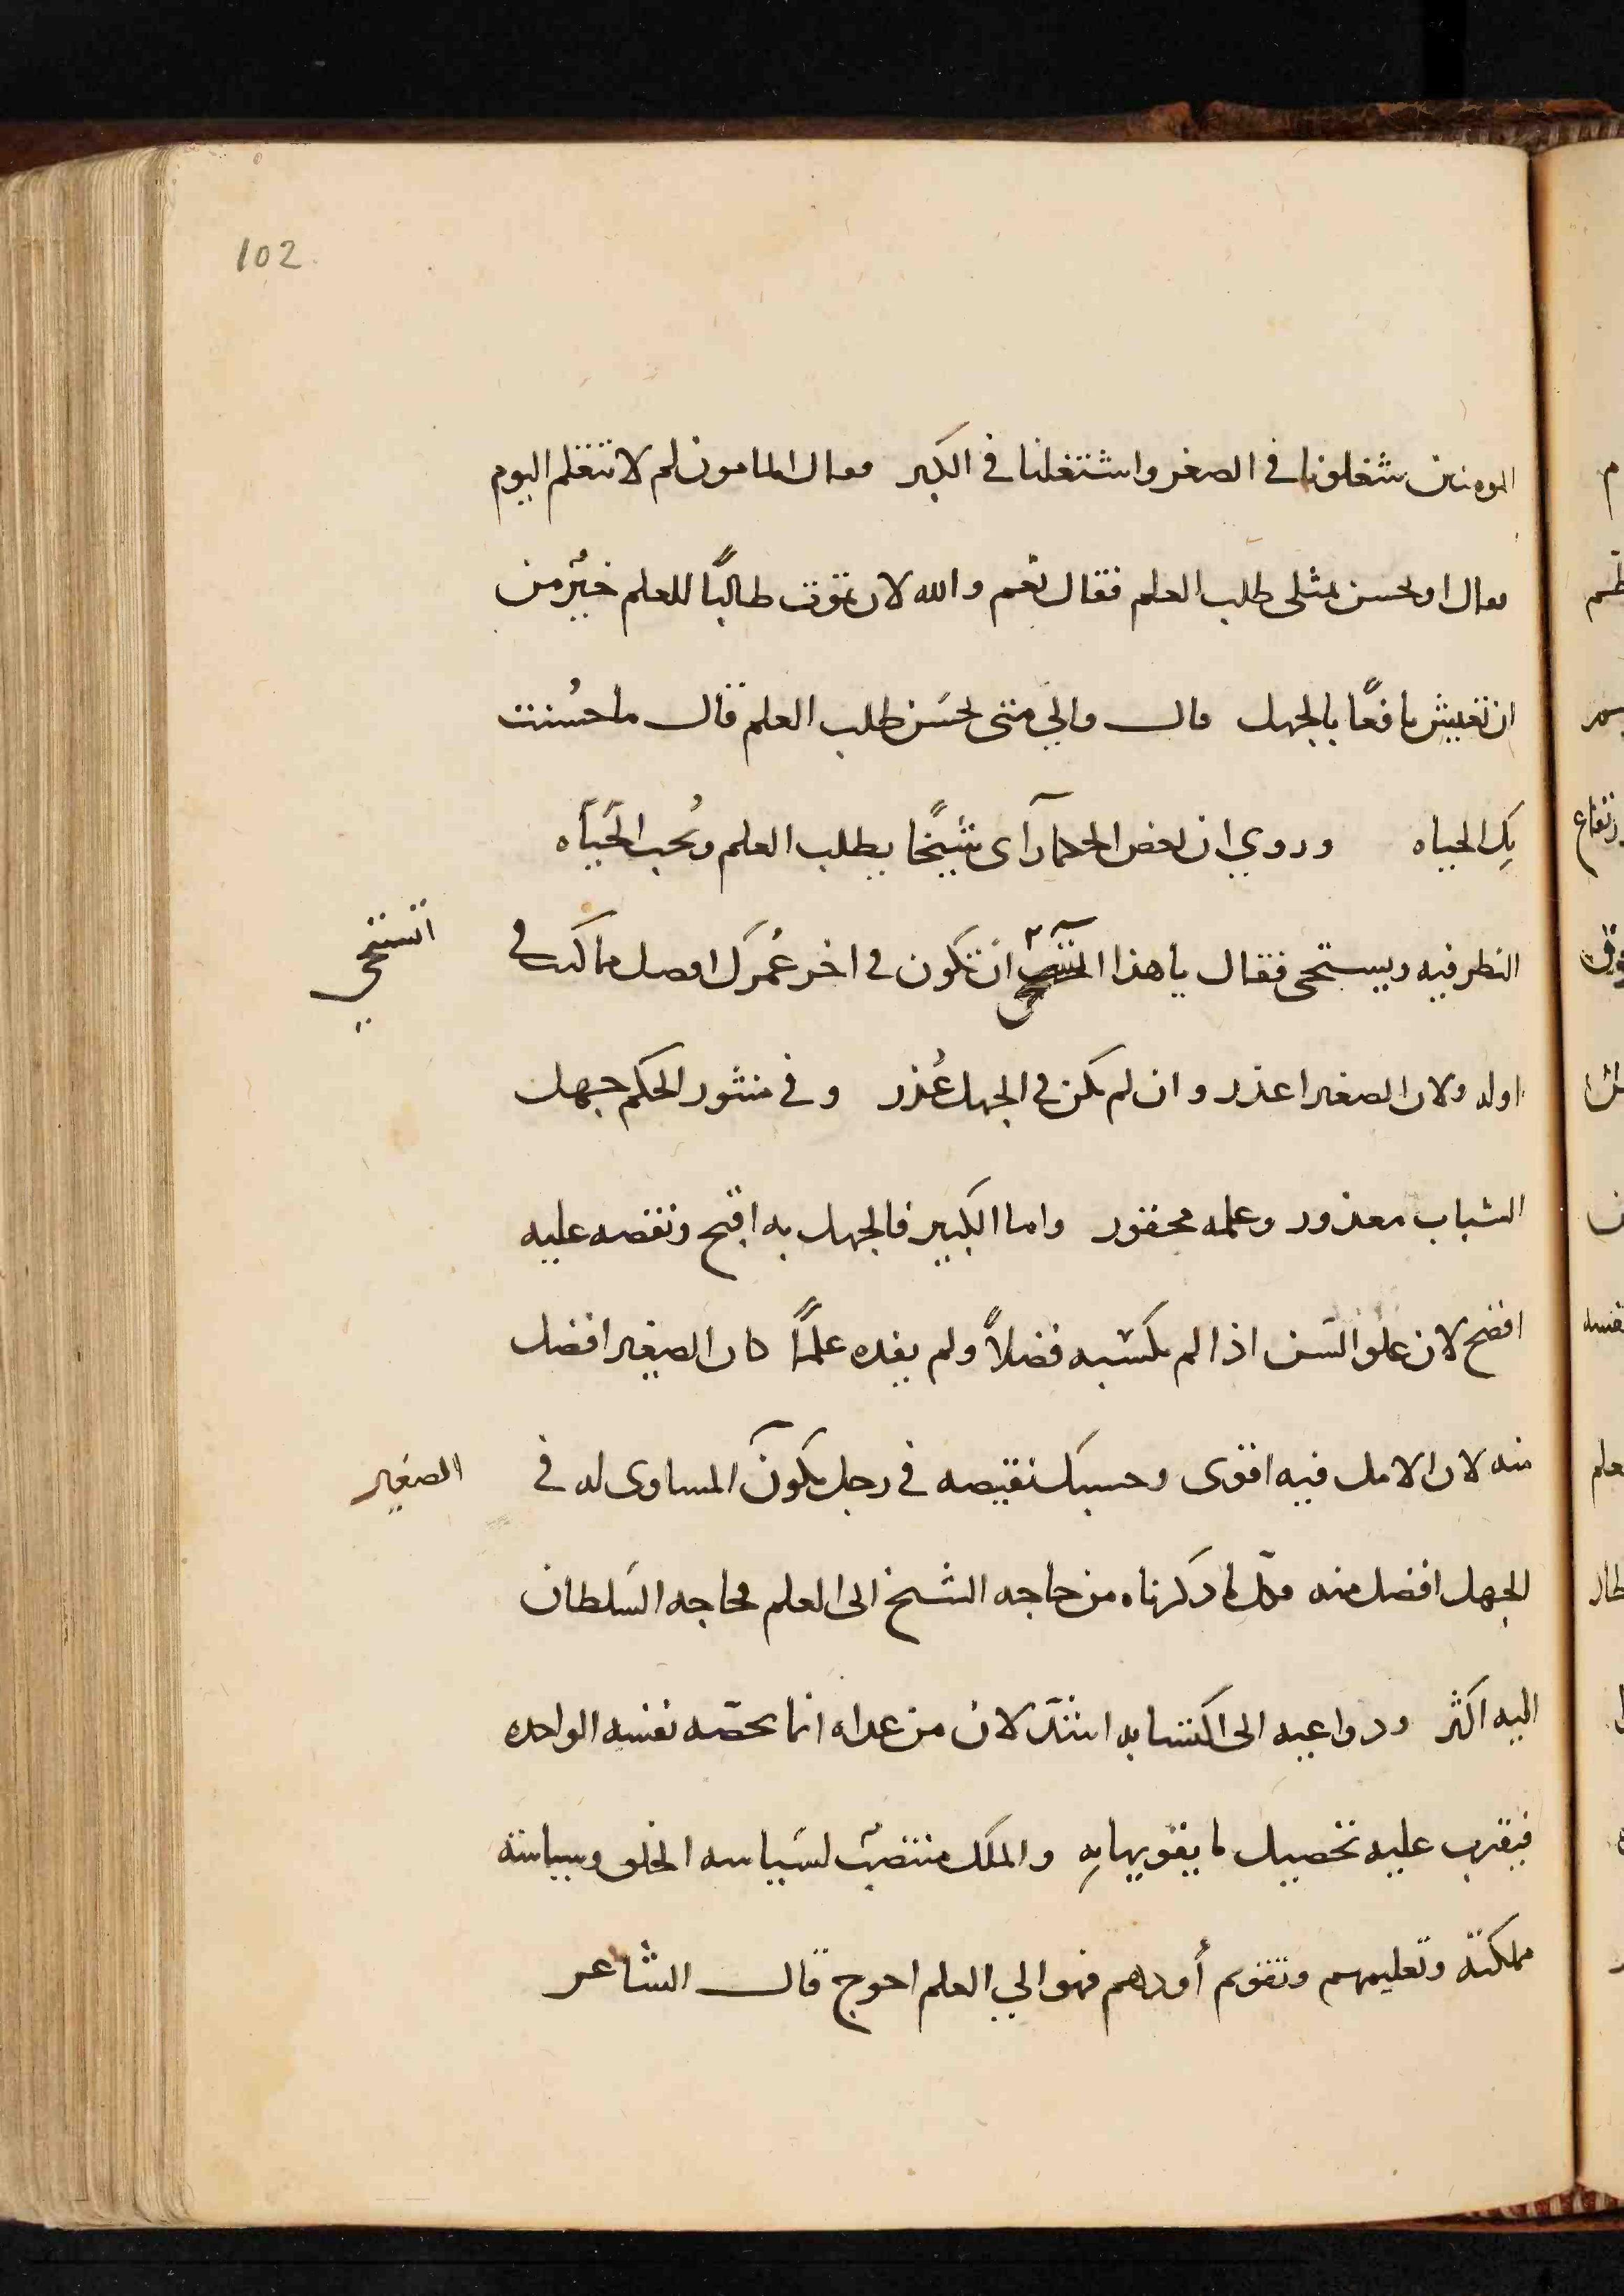 102
المومنين شغلونا في الصغر واشتغلنا في الكبر فقال المامون لم لا تتعلم اليوم
فقال اويحسن بمثلي طلب العلم فقال نعم والله لان تموت طالبًا للعلم خيرٌ من
ان تعيش قانعًا بالجهل قال والي متى يحسَن طلب العلم قال ما حسُنت
بِك الحياه وروي ان بعض الحكما رآى شيخًا يطلب العلم ويُحب
النظر فيه ويستحي فقال يا هذا اتستحي ان تكون في اخر عُمرك افضل مما كنت في
اتستحي
اوله ولان الصغير اعذر وان لم يكن في الجهل عُذر وفي منثور الحكم جهل
الشباب معذور وعلمه محقور واما الكبير فالجهل به اقبح ونقصه عليه
افضح لان علو السَن اذا لم يكسبه فضلاً ولم يفده علمًا كان الصغير افضل
منه لان الامل فيه اقوى وحسبك نقيصه في رجل يكون المساوى له في
الصغير
الجهل افضل منه وكل ما ذكرناه من حاجه الشيخ الى العلم فحاجه السَلطان
اليه اكثر ودواعيه الى اكتسابه اشدّ لان من عداه انما تخصّه نفسه الواحده
فيقرب عليه تحصيل ما يقويها بِه والملك منتصبٌ لسَياسه الخلق وسياسة
مملكتة وتعليمهم وتقويم أودهم فهو الي العلم احوج قال الشاعر